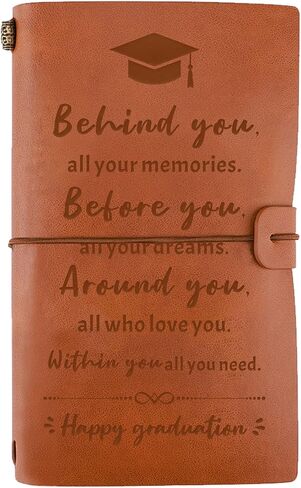 Behind you,
all your memories.
Before you,
all your dreams.
Around you,
all who love you.
Within you all you need.
Happy graduation